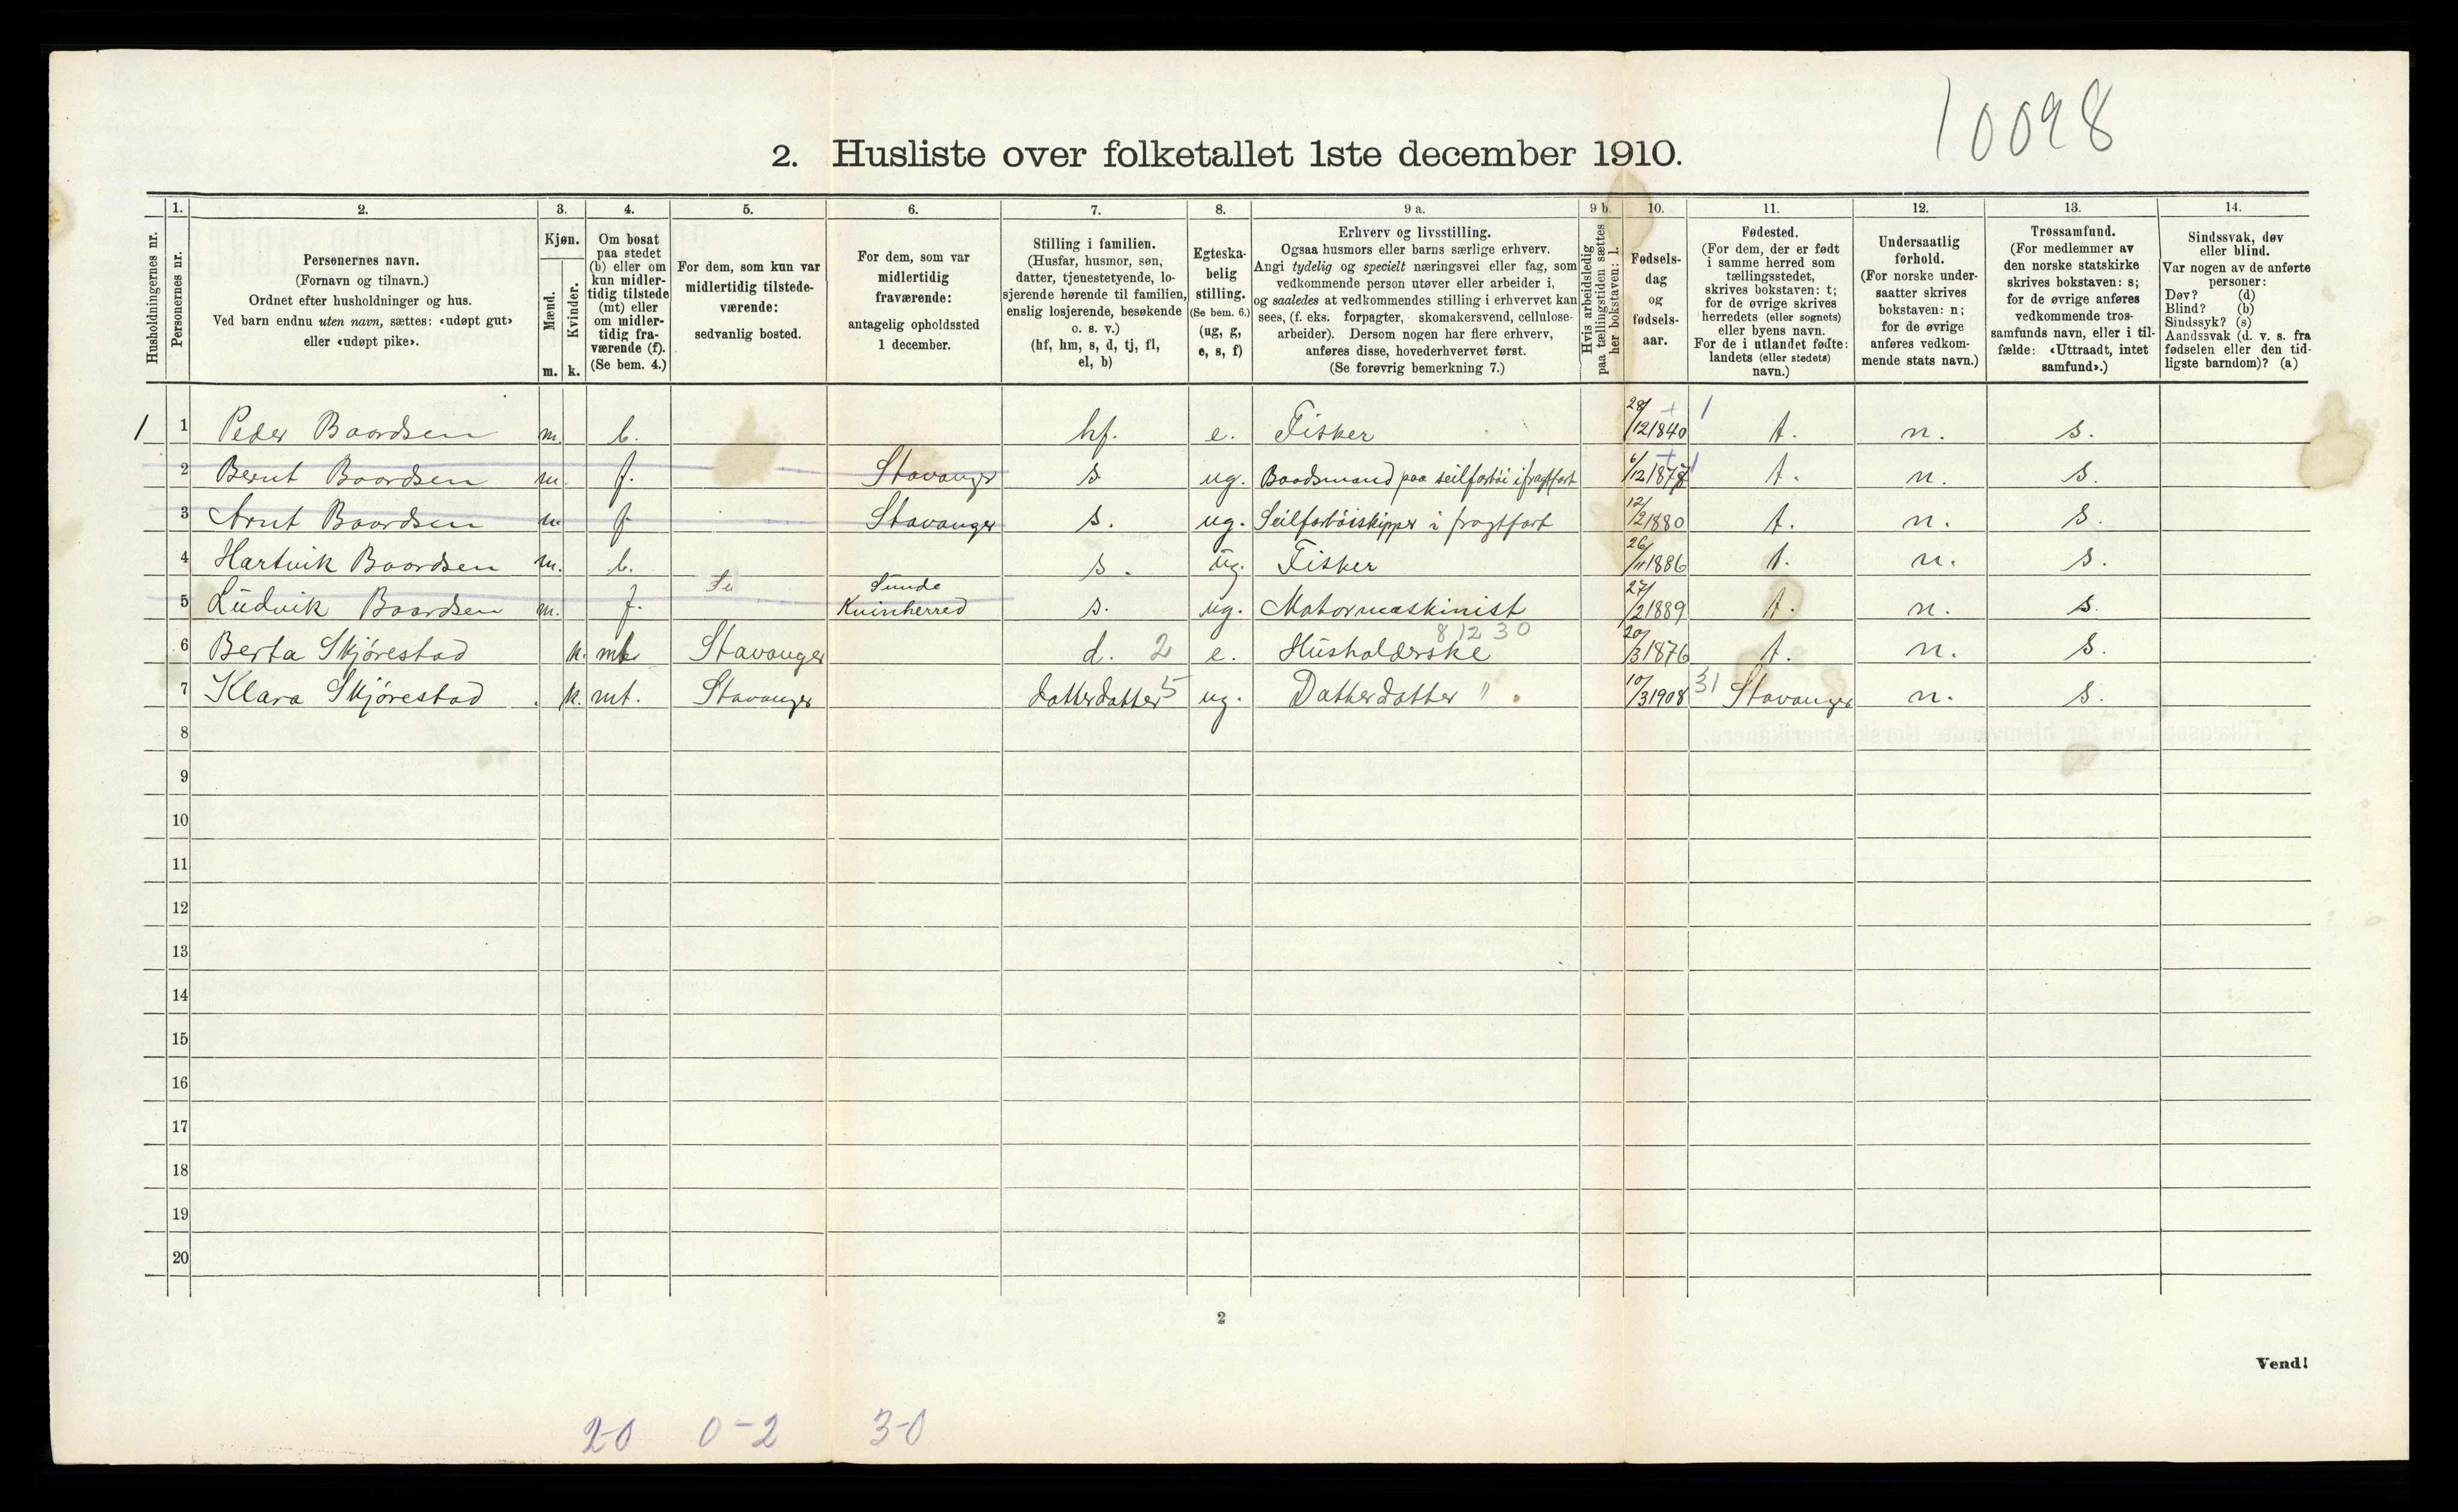 10098
2. Husliste over folketallet 1ste december 1910.
Husholdningernes nr.
1. Personernes nr.
2. Personernes navn.
(Fornavn og tilnavn.)
Ordnet efter husholdninger og hus.
Ved barn endnu uten navn, sættes: «udøpt gut»
eller «udøpt pike».
3. Kjøn.
Mænd. m.
Kvinder. k.
4. Om bosat
paa stedet
(b) eller om
kun midler-
tidig tilstede
(mt) eller
om midler-
tidig fra-
værende (f).
(Se bem. 4.)
5. For dem, som kun var
midlertidig tilstede-
værende:
sedvanlig bosted.
6. For dem, som var
midlertidig
fraværende:
antagelig opholdssted
1 december.
7. Stilling i familien.
(Husfar, husmor, søn,
datter, tjenestetyende, lo-
sjerende hørende til familien,
enslig losjerende, besøkende
o. s. v.)
(hf, hm, s, d, tj, fl,
el, b)
8. Egteska-
belig
stilling.
(Se bem. 6.)
(ug, g,
e, s, f)
9 a. Erhverv og livsstilling.
Ogsaa husmors eller barns særlige erhverv.
Angi tydelig og specielt næringsvei eller fag, som
vedkommende person utøver eller arbeider i,
og saaledes at vedkommendes stilling i erhvervet kan
sees, (f. eks. forpagter, skomakersvend, cellulose-
arbeider). Dersom nogen har flere erhverv,
anføres disse, hovederhvervet først.
(Se forøvrig bemerkning 7.)
9 b. Hvis arbeidsledig
paa tællingstiden sættes
her bokstaven: l.
10. Fødsels-
dag
og
fødsels-
aar.
11. Fødested.
(For dem, der er født
i samme herred som
tællingsstedet,
skrives bokstaven: t;
for de øvrige skrives
herredets (eller sognets)
eller byens navn.
For de i utlandet fødte:
landets (eller stedets)
navn.)
12. Undersaatlig
forhold.
(For norske under-
saatter skrives
bokstaven: n;
for de øvrige
anføres vedkom-
mende stats navn.)
13. Trossamfund.
(For medlemmer av
den norske statskirke
skrives bokstaven: s;
for de øvrige anføres
vedkommende tros-
samfunds navn, eller i til-
fælde: «Uttraadt, intet
samfund».)
14. Sindssvak, døv
eller blind.
Var nogen av de anførte
personer:
Døv? (d)
Blind? (b)
Sindssyk? (s)
Aandssvak (d. v. s. fra
fødselen eller den tid-
ligste barndom)? (a)
1 1 Peder Baardsen m. b. hf. e. Fisker 28/12 1840 t. n. s.
2 Bernt Baardsen m. f. Stavanger s ug. Baadsmand paa seilfartøi i fragtfart 6/12 1877 t. n. s.
3 Arnt Baardsen m f Stavanger s. ug. Seilfartøiskipper i fragtfart 12/2 1880 t. n. s.
4 Hartvik Baardsen m. b. s. ug. Fisker 26/11 1886 t. n. s.
5 Ludvik Baardsen m. f. Su Sunde Kvinherred s. ug. Motormaskinist 27/2 1889 t. n. s.
8 12 3 0
6 Berta Skjørestad k. mt Stavanger d. 2 e. Husholderske 20/3 1876 t. n. s.
7 Klara Skjørestad k. mt. Stavanger datterdatter 5 ug. Datterdatter " 10/3 1908 31 Stavanger n. s.
8
9
10
11
12
13
14
15
16
17
18
19
20
2
Vend!
2-0 0-2 3-0